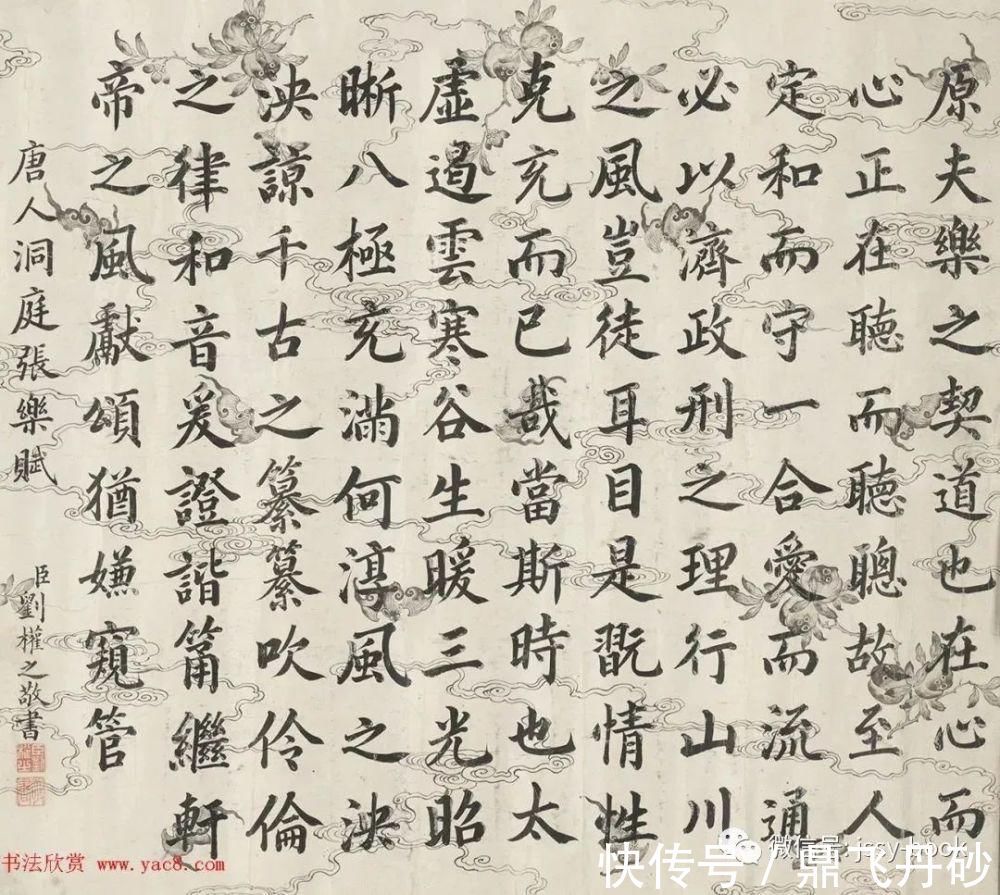 原夫樂之契道也在心而
心正在聽而聽聰故至人
定和而守一合愛而流通
必以濟政刑之理行山川
之風豈徒耳目是翫情性
克充而已哉當斯時也太
虛遏雲寒谷生暖三光昭
晰八極充滿何淳風之泱
泱諒千古之纂纂吹伶倫
之律和音爰證諧簫繼軒
帝之風獻頌猶嫌窺管
唐人洞庭張樂賦
臣劉權之敬書
书法欣赏 www.yac8.com
微信号: jssy-book
快传号 / 鼎飞丹砂